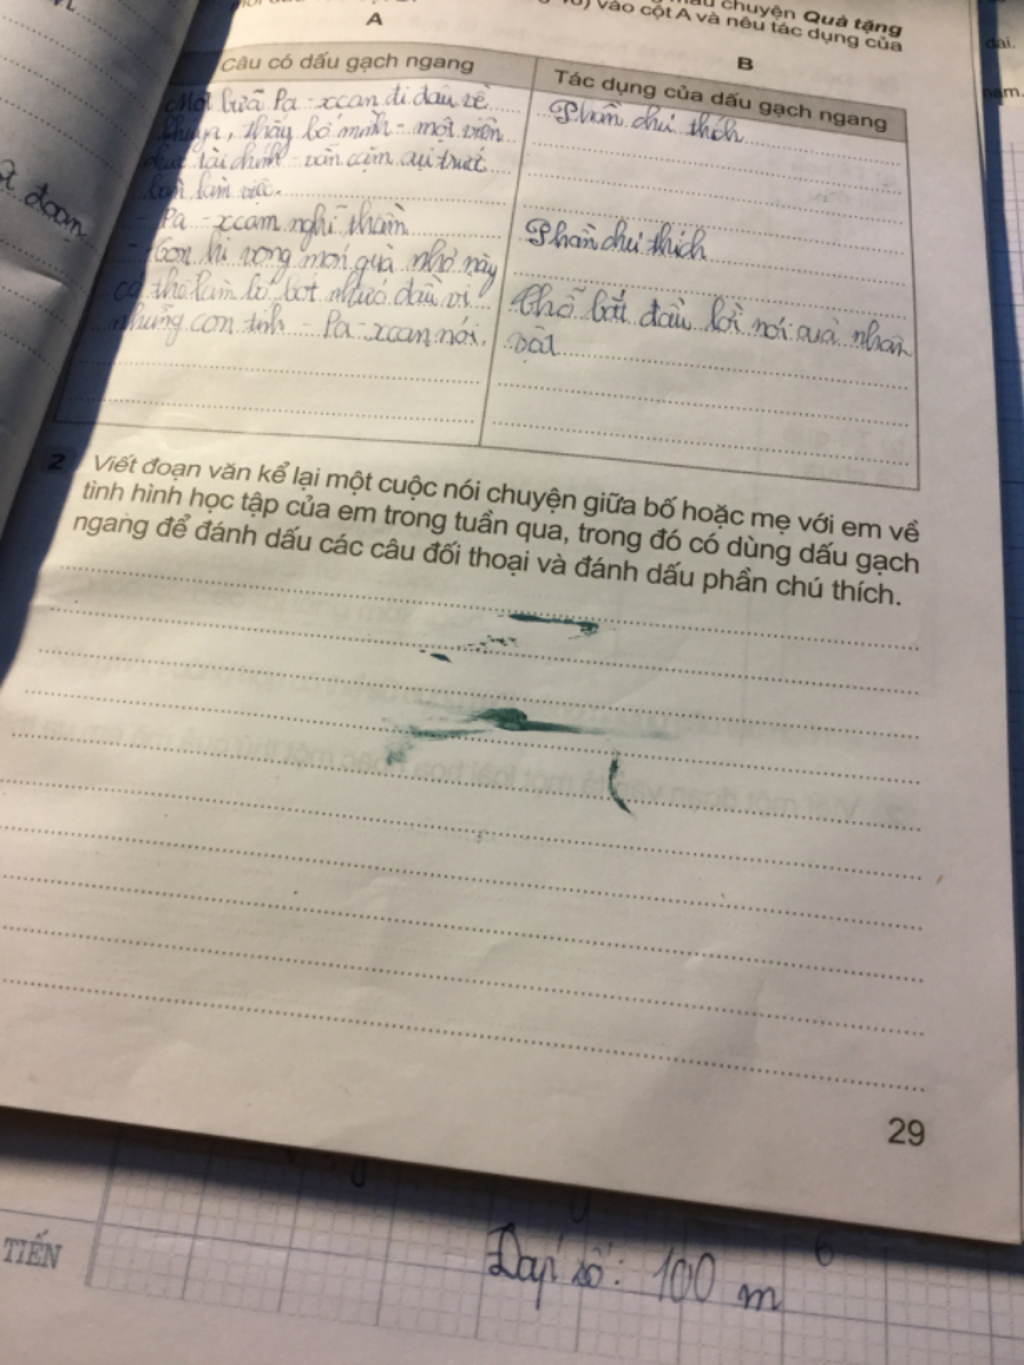 mẩu chuyện Quà tặng
vào cột A và nêu tác dụng của
A
B
Câu có dấu gạch ngang
Tác dụng của dấu gạch ngang
Một bữa Pa-xcan đi đâu về
thấy bố mình - một viên
tài chính - vẫn cặm cụi trước
bàn làm việc.
Phần chú thích
- Pa-xcam nghĩ thầm
Phần chú thích
- Con hi vọng món quà nhỏ này
có thể làm bố bớt nhức đầu vì
những con tính - Pa-xcan nói.
Chỗ bắt đầu lời nói quà nhân
vật
đoạn
dài.
năm.
2 Viết đoạn văn kể lại một cuộc nói chuyện giữa bố hoặc mẹ với em về
tình hình học tập của em trong tuần qua, trong đó có dùng dấu gạch
ngang để đánh dấu các câu đối thoại và đánh dấu phần chú thích.
29
TIẾN
Đáp số: 100 m
6